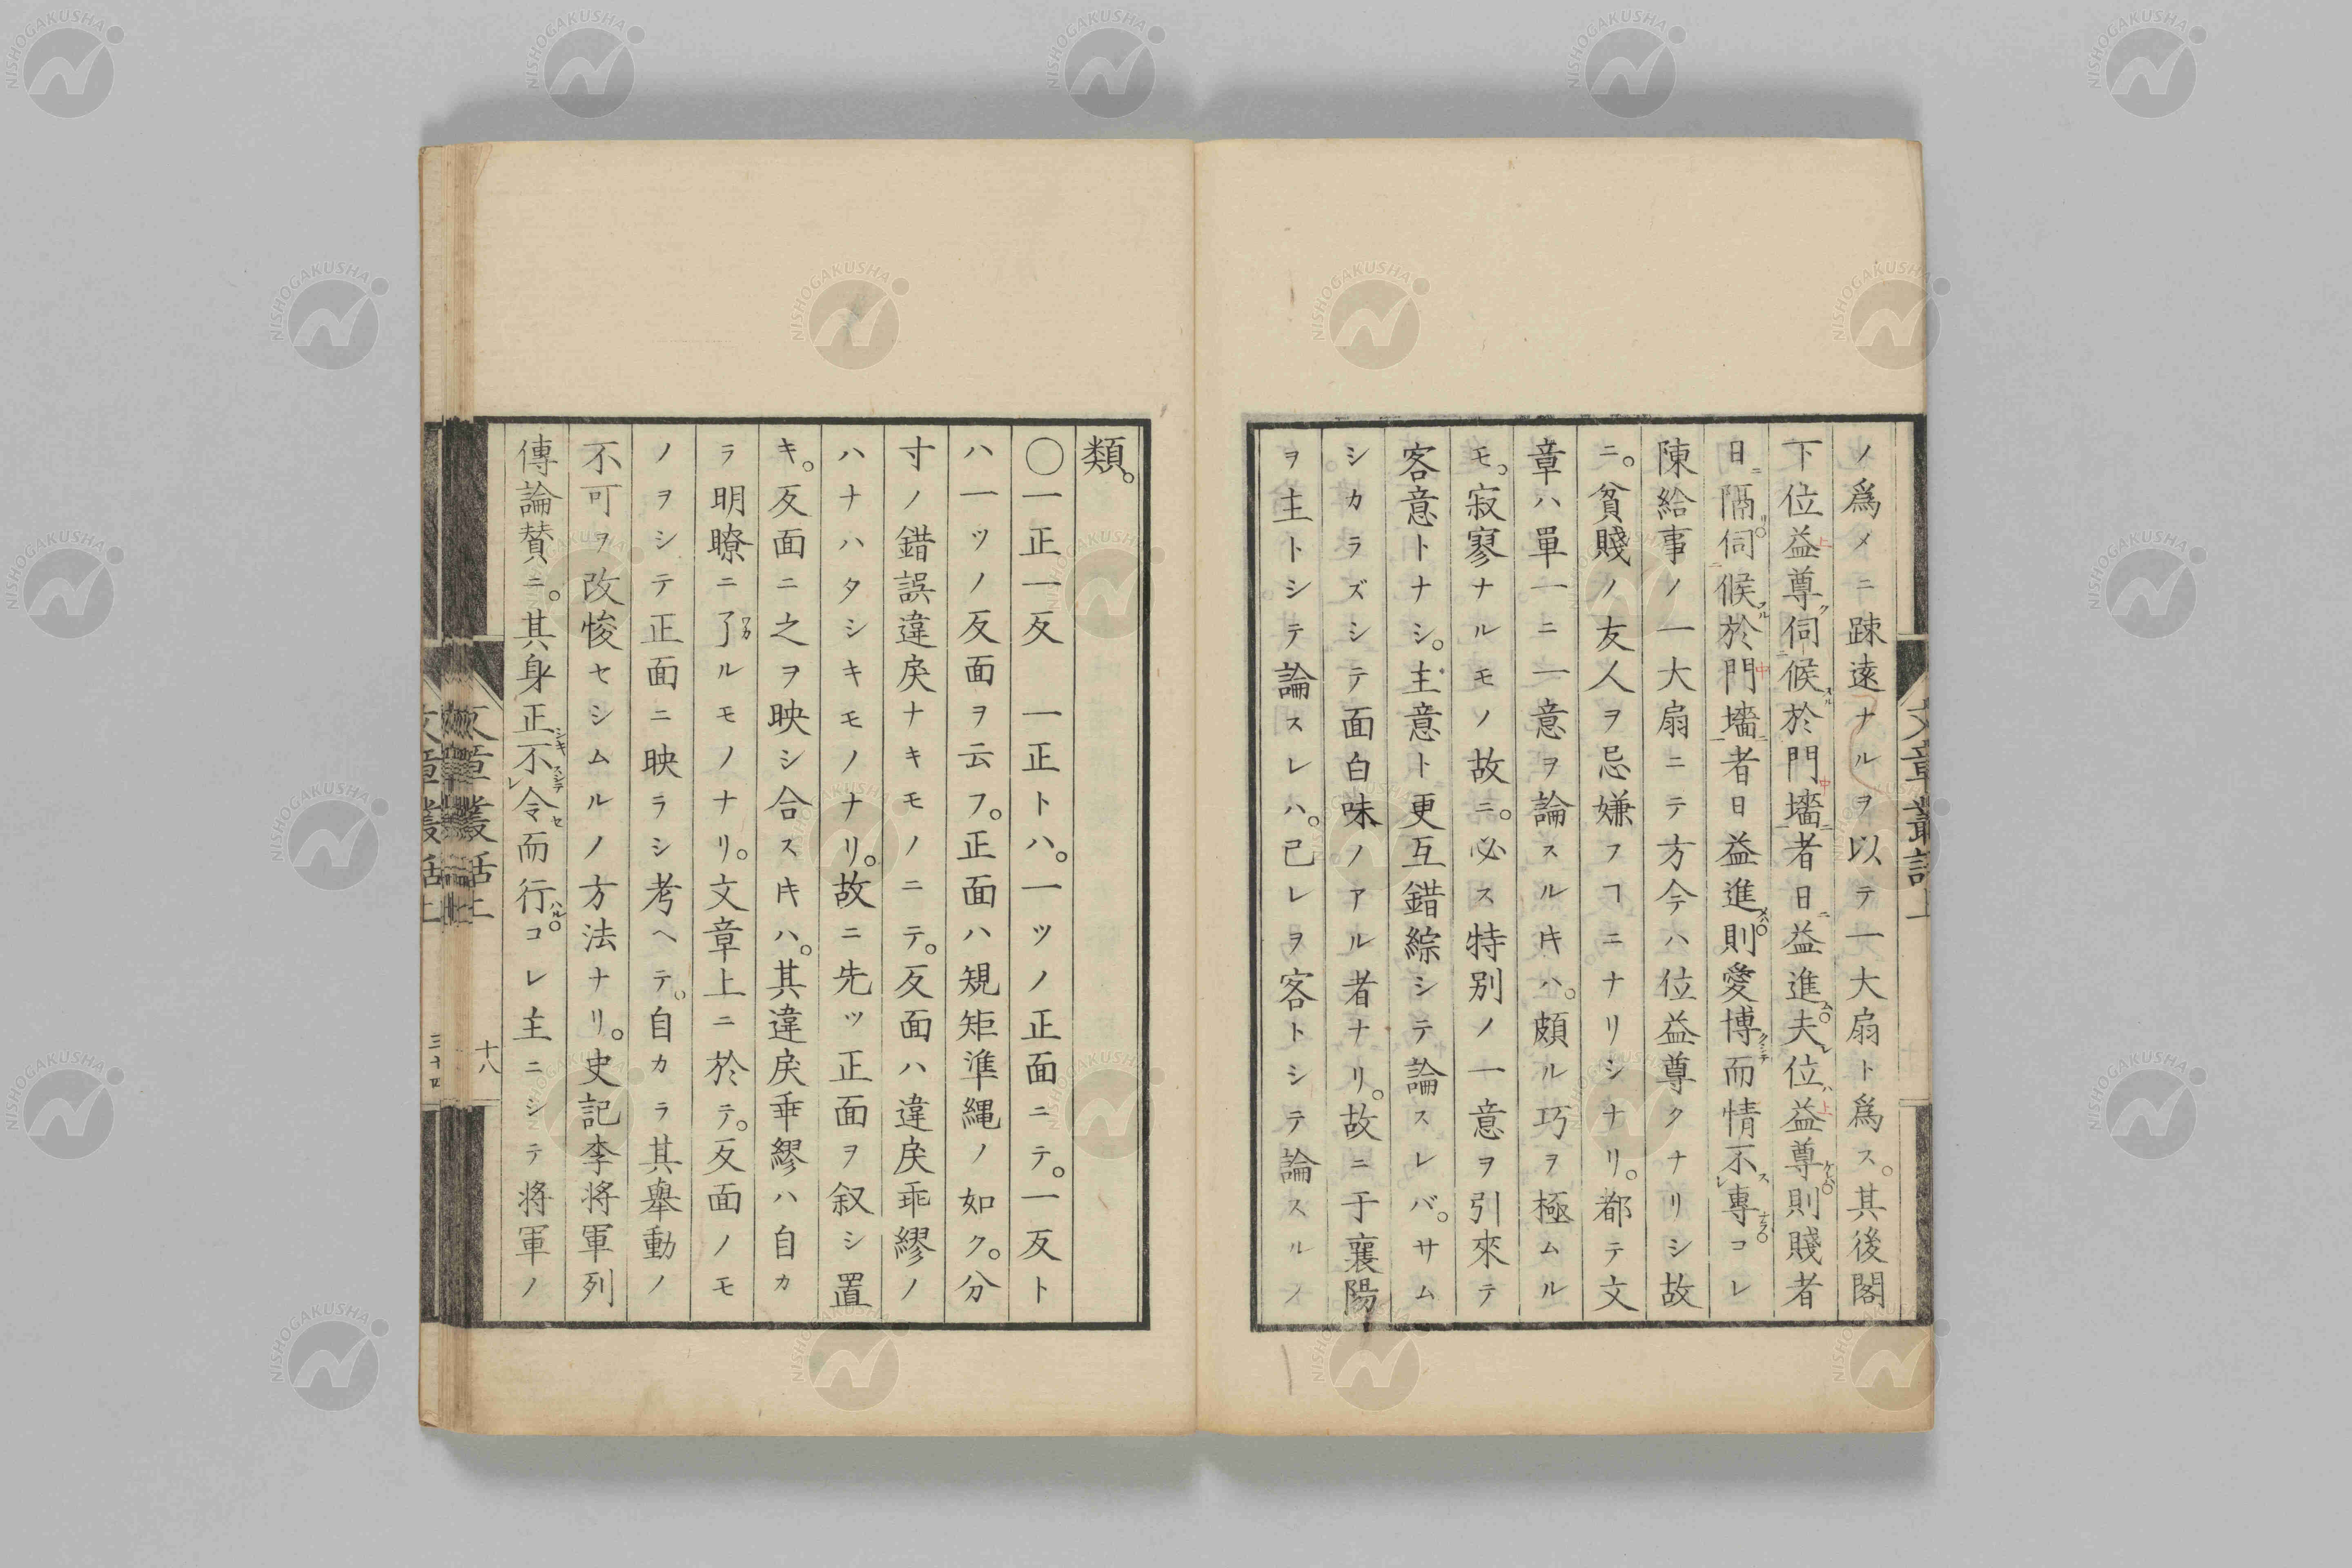 ノ爲メニ踈遠ナルヲ以テ一大扇ト爲ス。其後閣
下位益尊伺候於門墻者日益進夫位益尊則賤者
日隔伺候於門墻者日益進則愛博而情不專コレ
陳給事ノ一大扇ニテ方今ハ位益尊クナリシ故
ニ。貧賤ノ友人ヲ忌嫌フヿニナリシナリ。都テ文
章ハ單一ニ一意ヲ論スルキハ。頗ル巧ヲ極ムル
モ。寂寥ナルモノ故ニ。必ス特別ノ一意ヲ引來テ
客意トナシ。主意ト更互錯綜シテ論スレバ。サム
シカラズシテ面白味ノアル者ナリ。故ニ于襄陽
ヲ主トシテ論スレハ。己レヲ客トシテ論スルノ
文章叢話上
類。
〇一正一反　一正トハ。一ツノ正面ニテ。一反ト
ハ一ツノ反面ヲ云フ。正面ハ規矩準縄ノ如ク。分
寸ノ錯誤違戾ナキモノニテ。反面ハ違戾乖繆ノ
ハナハタシキモノナリ。故ニ先ツ正面ヲ叙シ置
キ。反面ニ之ヲ映シ合スキハ。其違戾乖繆ハ自カ
ラ明瞭ニ了ルモノナリ。文章上ニ於テ。反面ノモ
ノヲシテ正面ニ映ラシ考ヘテ。自カラ其舉動ノ
不可ヲ改悛セシムルノ方法ナリ。史記李將軍列
傳論賛ニ。其身正不令而行コレ主ニシテ將軍ノ
十八
三十四